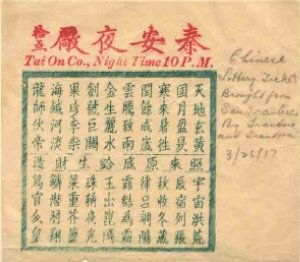 泰安夜廠
拾点
Tai On Co., Night Time 10 P.M.
天地玄黃
日月盈昃
寒來暑往
閏餘成歲
雲騰致雨
金生麗水
劍號巨闕
果珍李柰
海鹹河淡
龍師火帝
照來原給生財造
宇宙洪荒
辰宿列張
秋收冬藏
律呂調陽
露結為霜
玉出崑岡
珠稱夜光
菜重芥薑
鱗潛羽翔
鳥官人皇
Chinese
Lottery Ticket
Brought from
San Francisco
By Grandma
and Grandpa
3/26/17